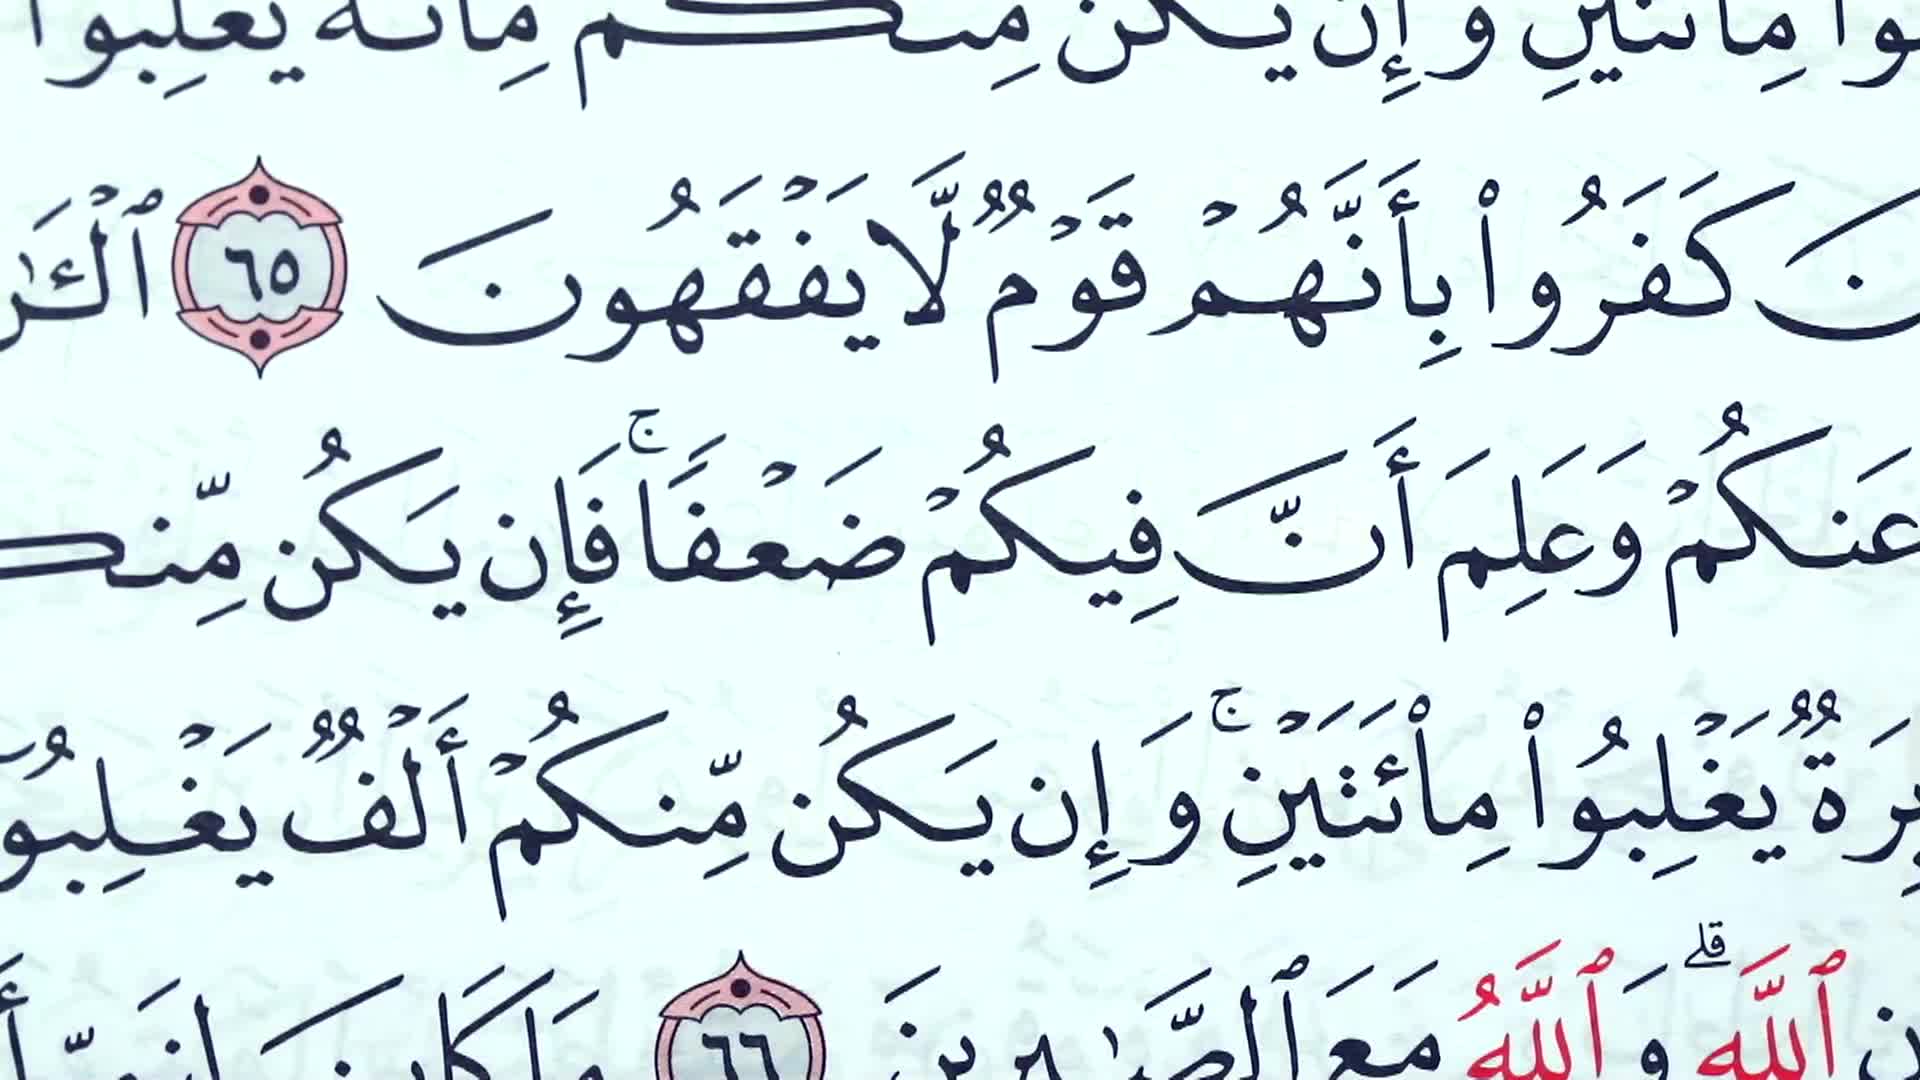 مِائَتَيْنِ وَإِن يَكُن مِنكُم مِائَة يَغْلِبُوا
كَفَرُوا۟ بِأَنَّهُمْ قَوْمٌ لَّا يَفْقَهُونَ ٦٥
عَنكُمْ وَعَلِمَ أَنَّ فِيكُمْ ضَعْفًا ۚ فَإِن يَكُن
يَغْلِبُوا۟ مِا۟ئَتَيْنِ ۚ وَإِن يَكُن مِّنكُمْ أَلْفٌ
ٱللَّهِ ۗ وَٱللَّهُ مَعَ ٱلصَّـٰبِرِينَ ٦٦